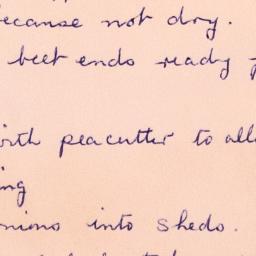 because not dry.
beet ends ready
with peacutter to all
ing
into sheds.